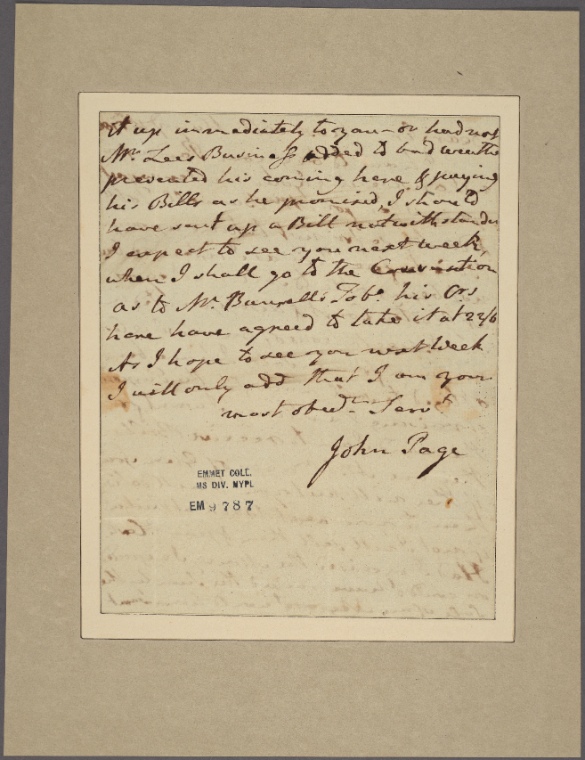 it up immediately to you—or had not
Mr. Lees Business added to bad weather
prevented his coming here & paying
his Bills as he promised, I should
have sent up a Bill notwithstandg
I expect to see you next week,
when I shall go to the Convention
as to Mr. Burwell's Tobo. his Ors
here have agreed to take it at 22/6
As I hope to see you next Week
I will only add that I am your
most obedt. Servt
John Page
EMMET COLL.
MS DIV. NYPL
EM 9787